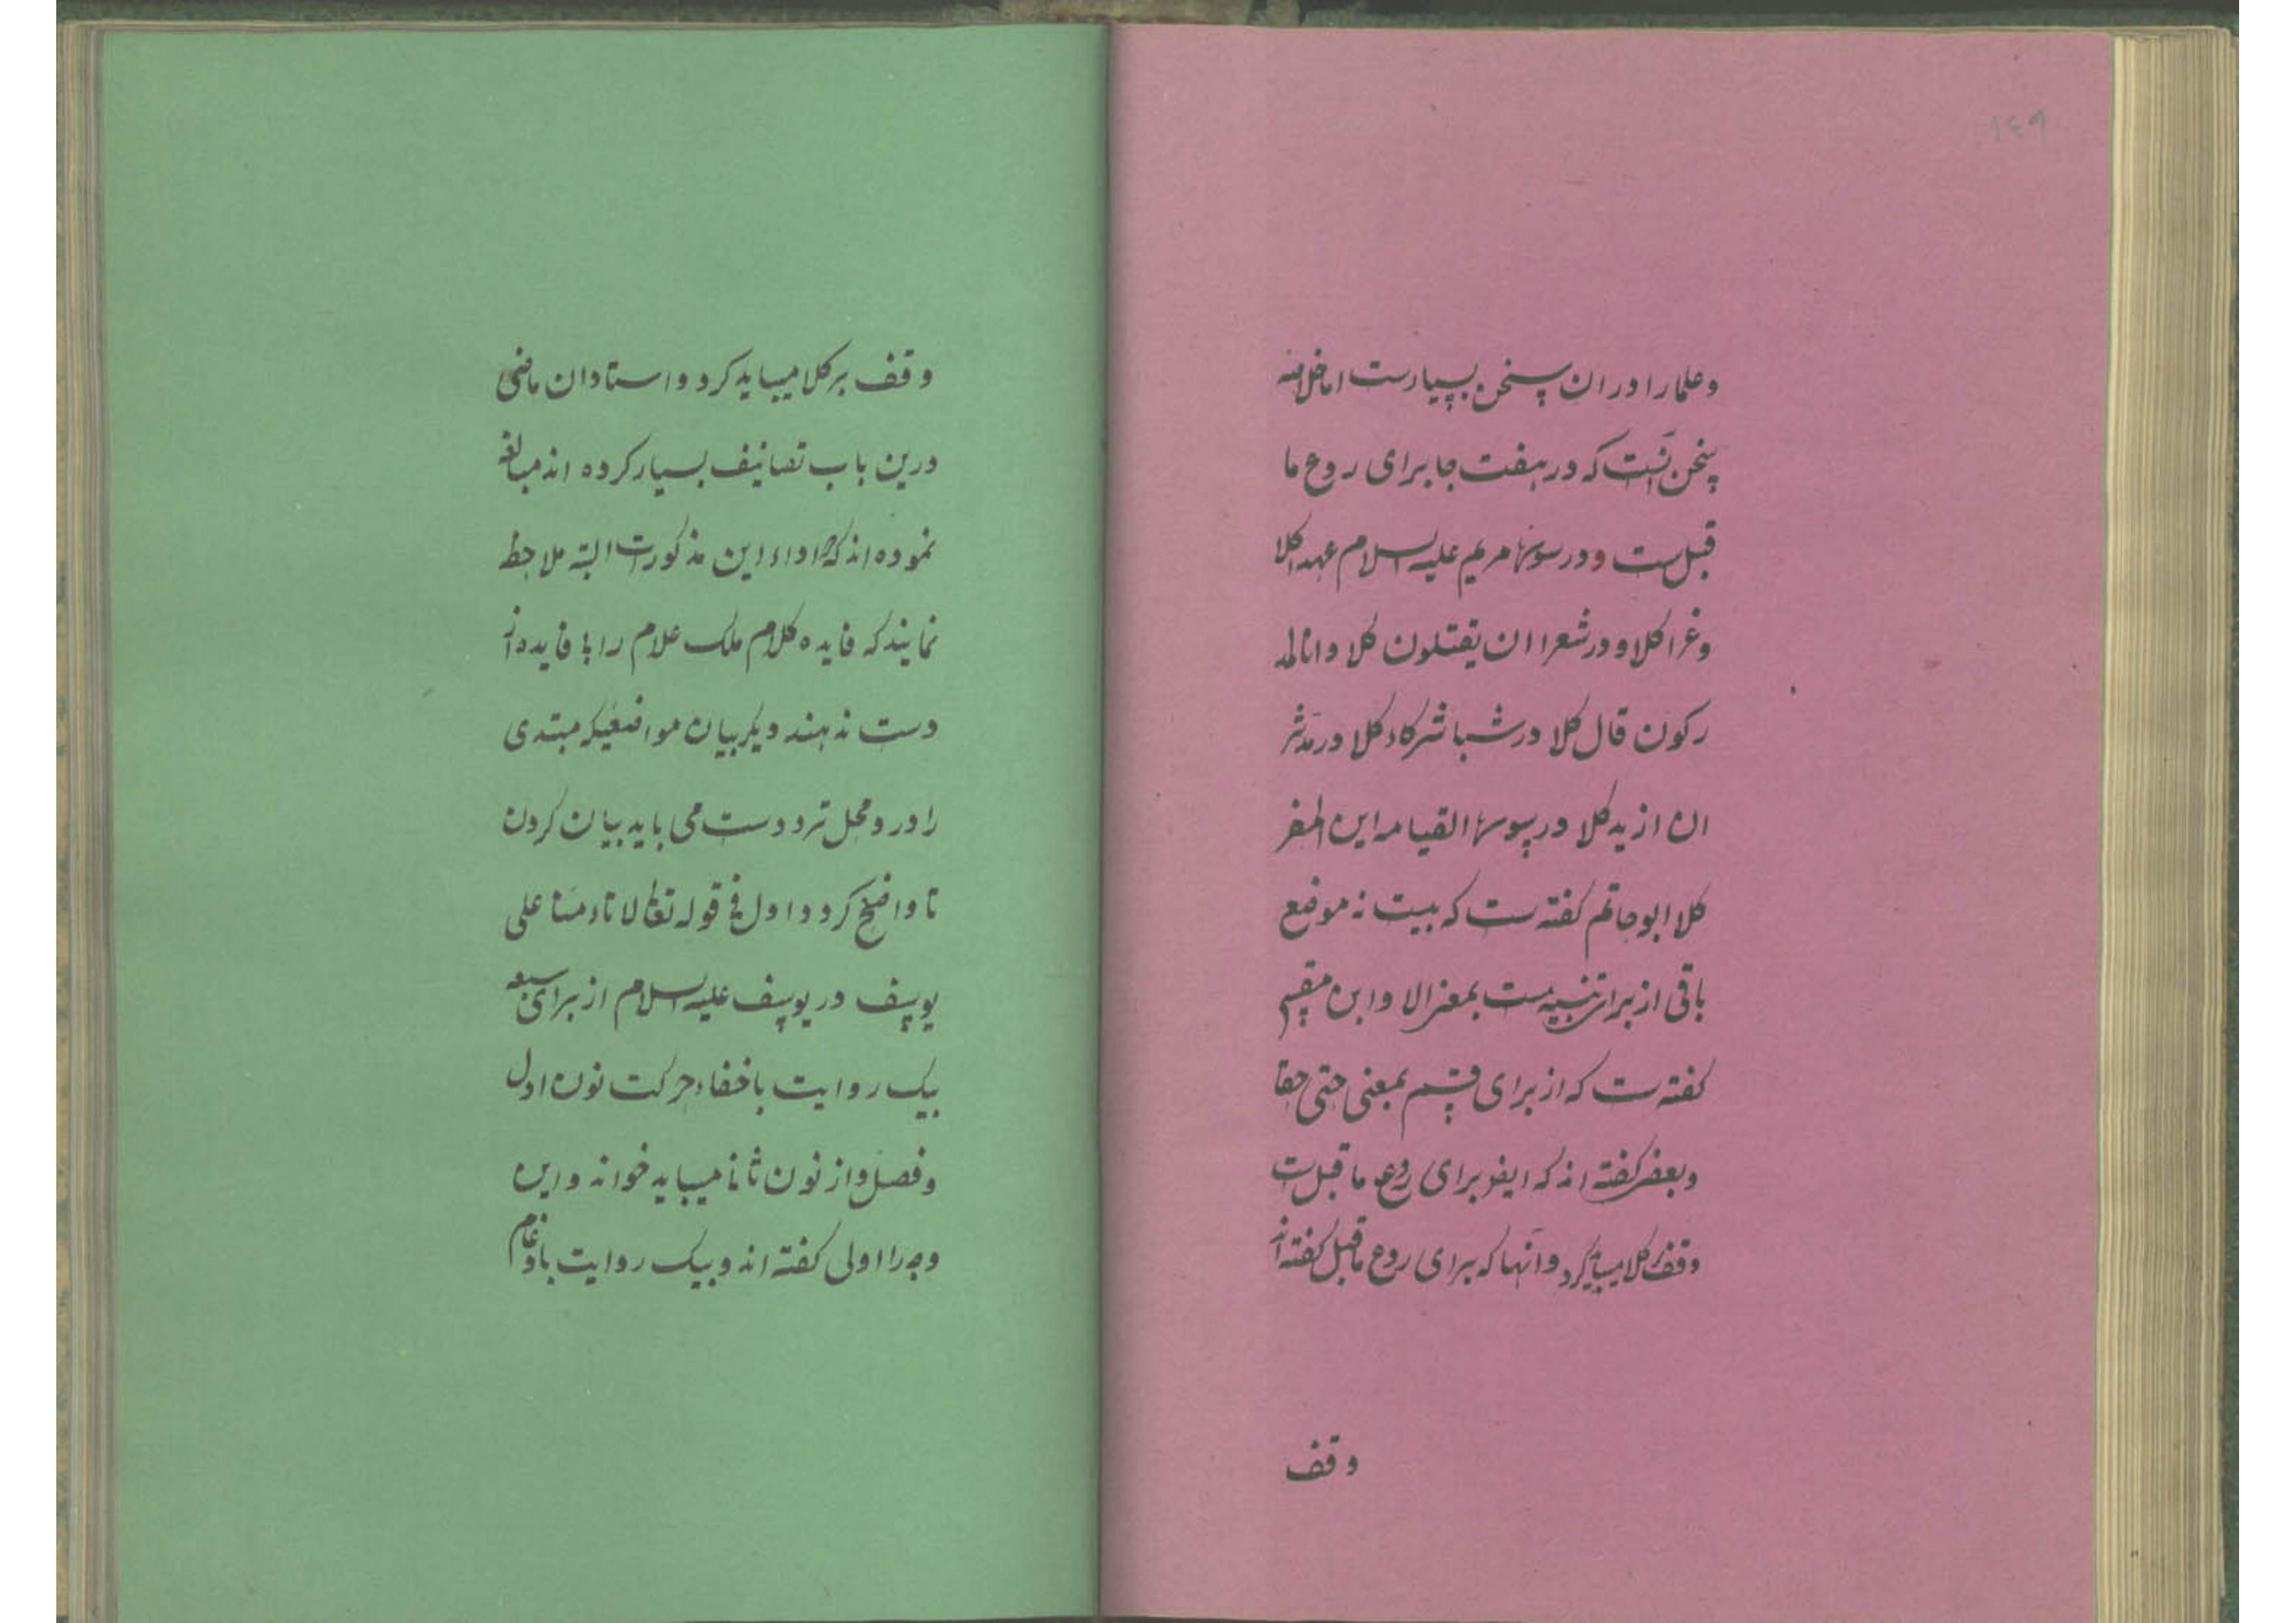 ١٤٩
وعلما را در ان سخن بسیارست اما خلاصه
سخن آنست که در هفت جا برای ردع ما
قبل‌ست و در سورۀ مریم علیه السلام عهدا کلا
وعزا کلا و در شعرا ان یقتلون کلا وانا لمد
رکون قال کلا در سبا شرکاء کلا در مدثر
ان ازید کلا در سورۀ القیامه این المفر
کلا ابو حاتم کفته ست که بیست نه موضع
باقی از برای تنبیه ست بمعنی الا وابن مقسم
کفته ست که از برای قسم بمعنی حتی حقا
وبعضی کفته اند که ایضو برای ردع ما قبل‌ست
وقف بر کلا میباید کرد وآنها که برای ردع ماقبل کفته اند
وقف
وقف بر کلا میباید کرد و استادان ماضی
درین باب تصانیف بسیار کرده اند مبالغه
نموده اند که اداء این مذکورست البته ملاحظ
نمایند که فایده کلام ملک علام را با فایده از
دست ندهند دیکر بیان مواضعیکه مبتدی
را در و محل تردد ست می باید بیان کردن
تا واضح کردد اول فی قوله تعالی لا تاءمنا علی
یوسف در یوسف علیه السلام از برای سبعه
بیک روایت باخفاء حرکت نون اول
وفصل و از نون ثانی میباید خواند و این
وجه را اولی کفته اند و بیک روایت بادغام